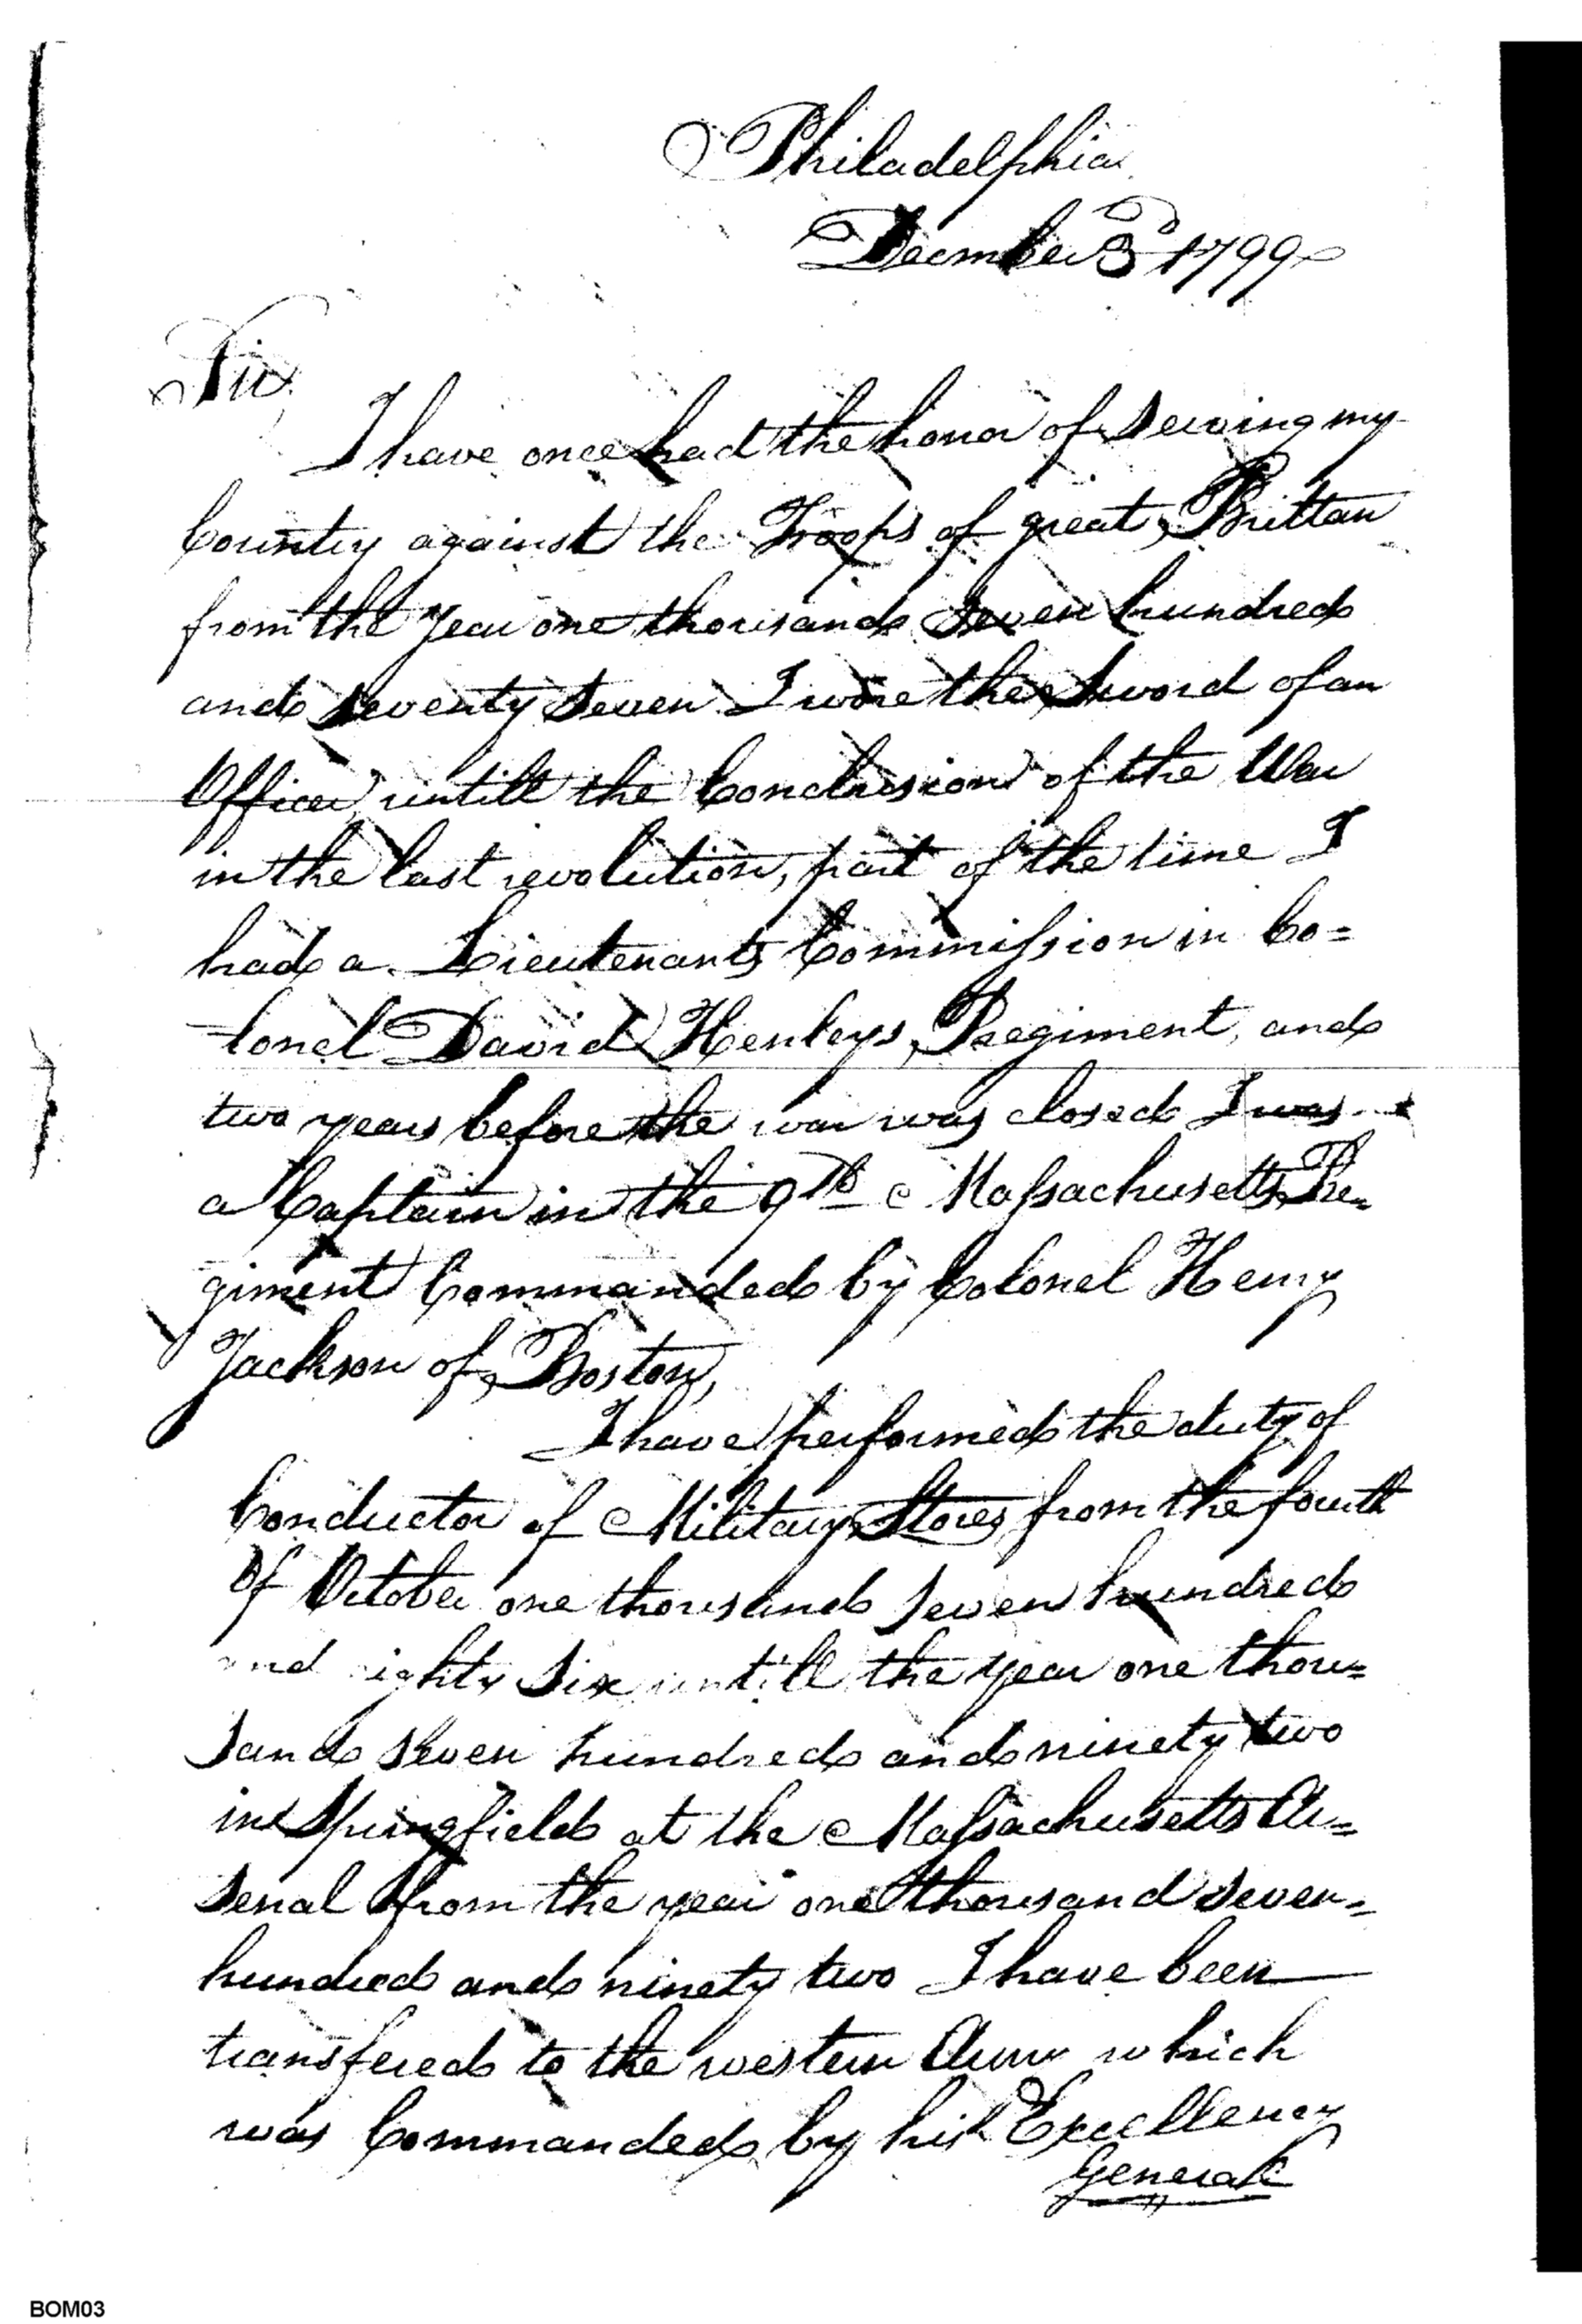 Philadelphia
Decmber 3d 1799
Sir
I have once had the honor of serving my
Country against the Troops of great Brittan
from the Year one thousand Seven hundred
and Seventy Seven I wore the Sword of an
Officer untill the Conclusion of the War
in the last revolution, part of the time I
had a Lieutenants Commission in Co=
lonel David Henleys Regiment, and
two years before the war was closed I was
a Captain in the 9th Massachusetts Re=
giment Commanded by Colonel Henry
Jackson of Boston,
I have performed the duty of
Conductor of Military Stores from the fourth
of October one thousand Seven hundred
and eighty Six untill the year one thou=
sand Seven hundred and ninety two
in Springfield at the Massachusetts Ar=
senal from the year one thousand Seven=
hundred and ninety two I have been
transfered to the western Army which
was Commanded by his Excellency
General
BOM03